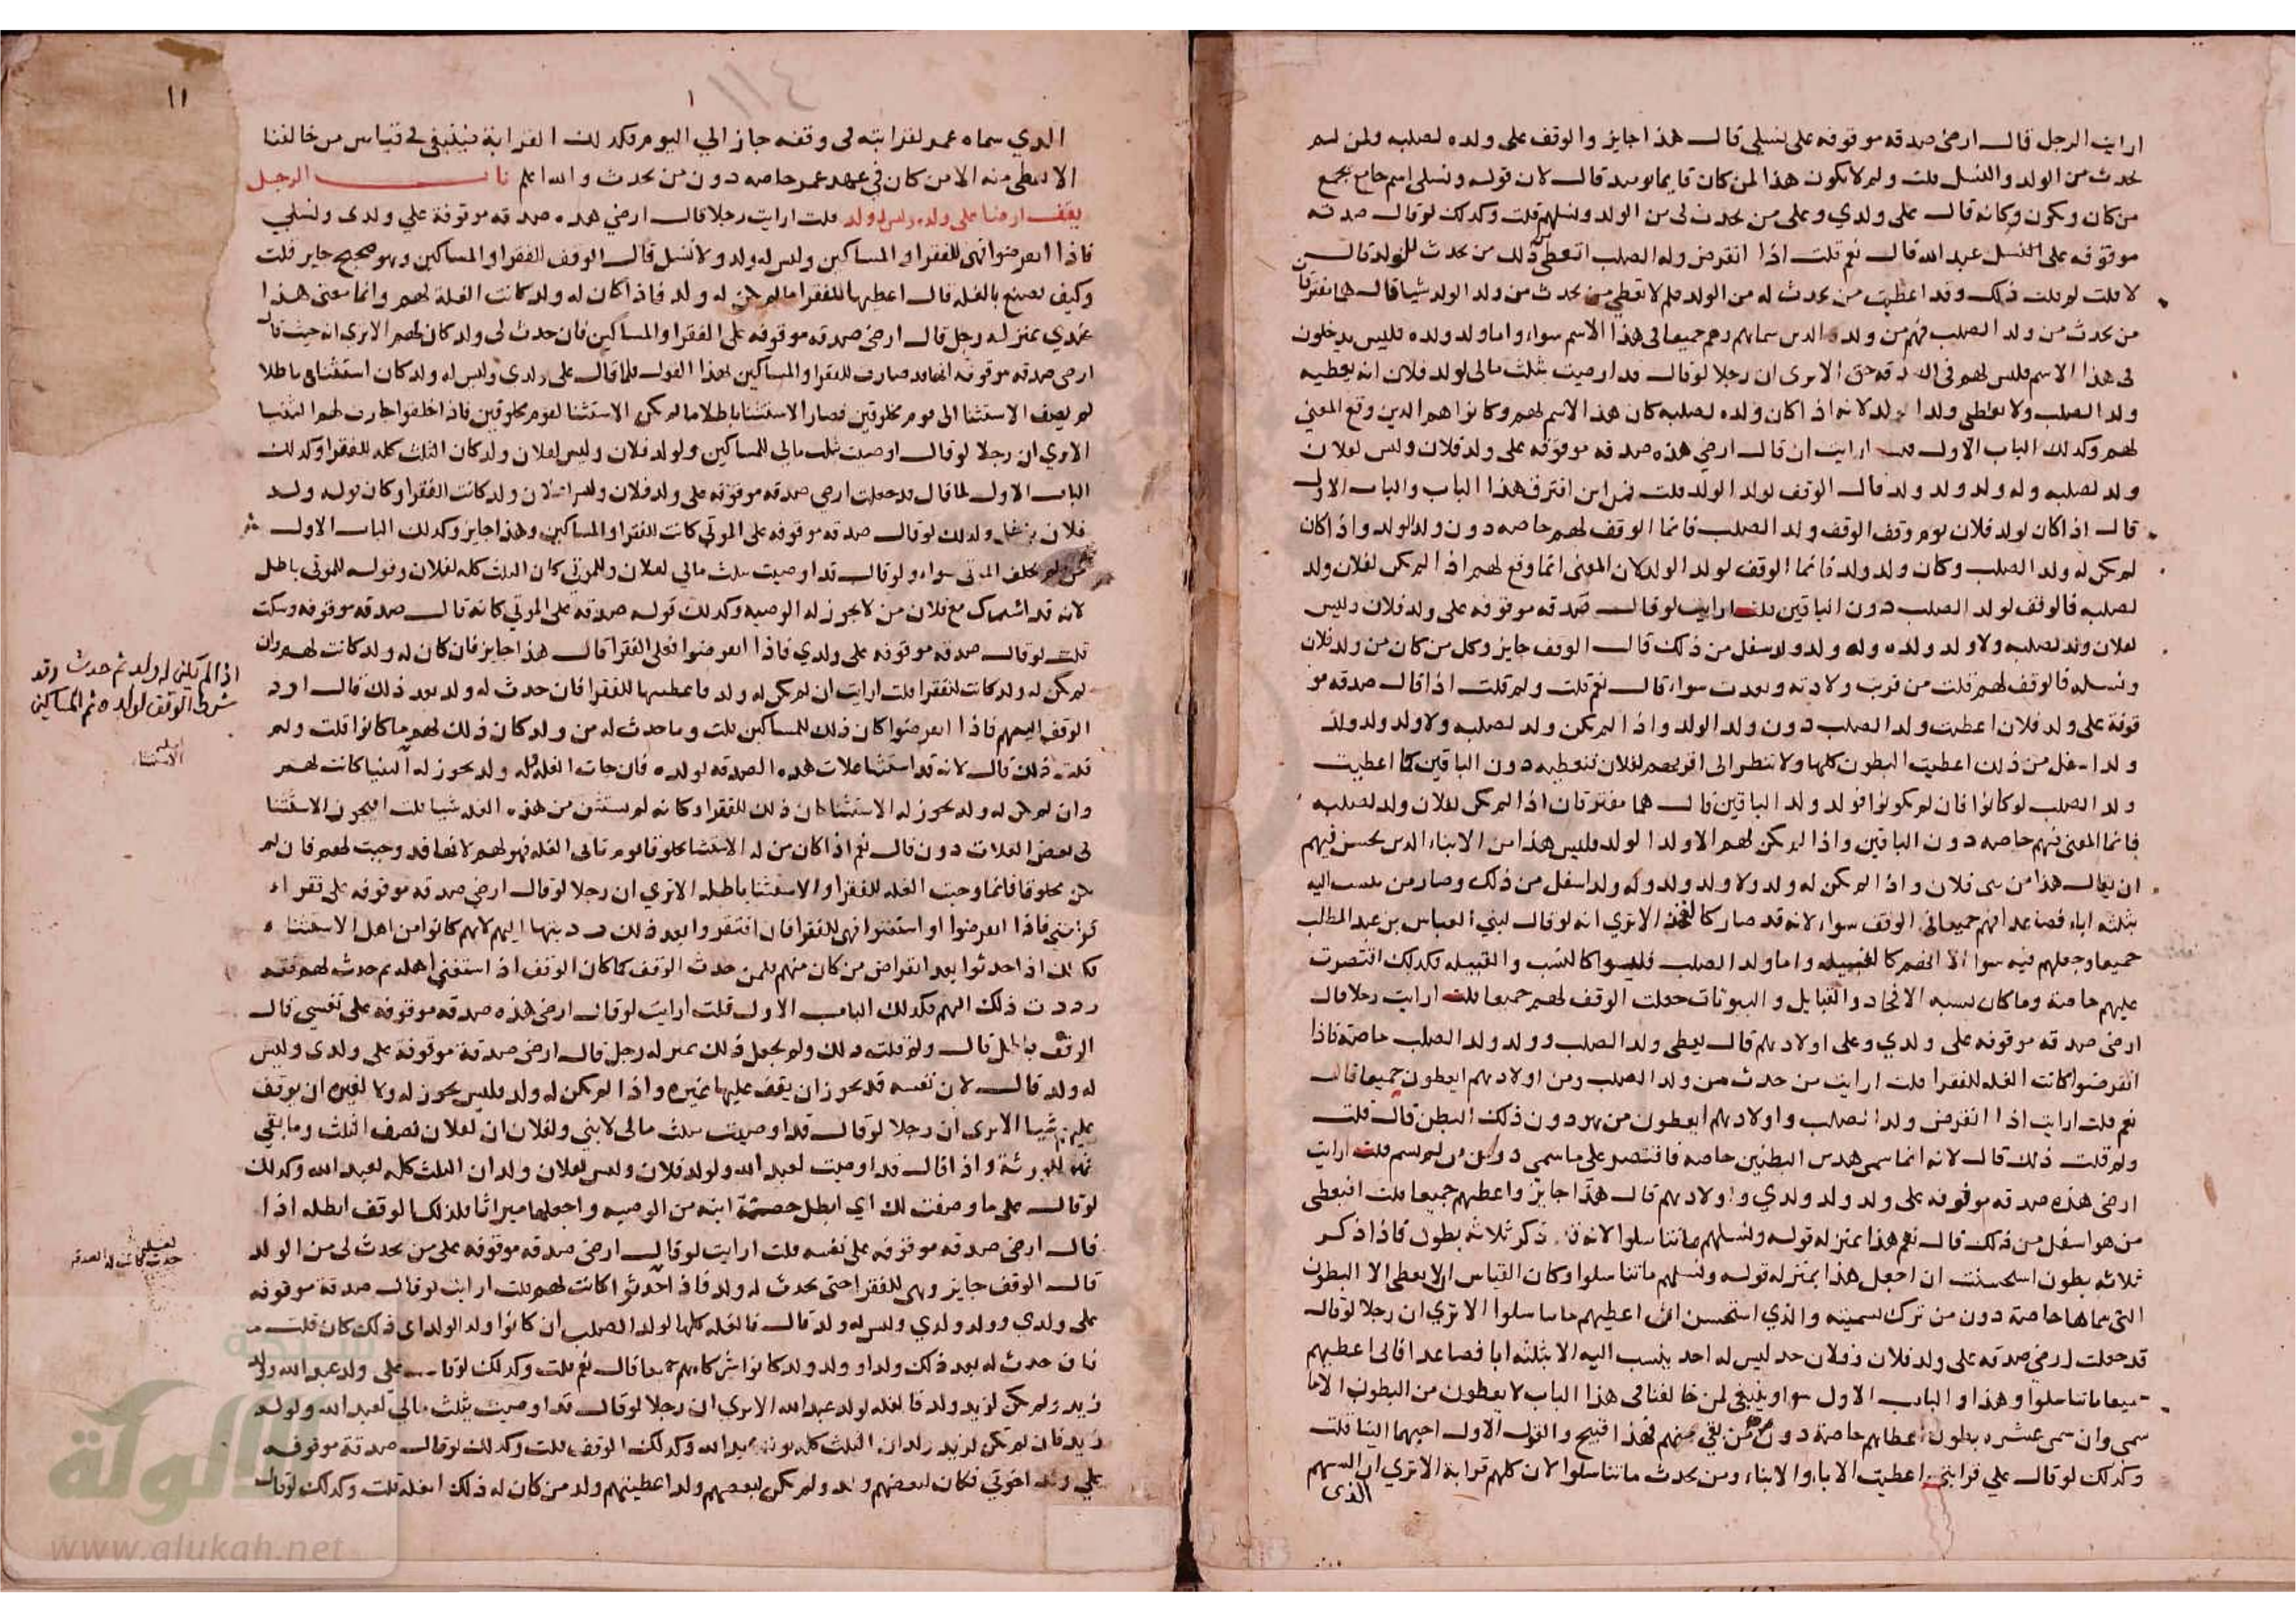 ارايت الرجل قال ارضى صدقه موقوفه على نسلي قال هذا جايز والوقف على ولده لصلبه ولمن لم
يحدث من الولد والنسل قلت ولم لا يكون هذا لمن كان قايما يوميد قال لان قوله ونسلى اسم جامع يجمع
من كان ويكون وكانه قال على ولدي وعلى من يحدث لى من الولد ونسلهم قلت وكذلك لوقال صدقه
موقوفه على نسل عبد الله قال نعم قلت اذا انقرض ولد الصلب اتعطى ذلك من يحدث للولد قال
لا قلت لم قلت ذلك وقد اعطيت من يحدث له من الولد فلم لا تعطى من يحدث من ولد الولد شيا قال هما مفترقا
من يحدث من ولد الصلب فهم من ولده الدين سماهم وهم جميعا فى هذا الاسم سواء واما ولد ولده فليس يدخلون
فى هذا الاسم فليس لهم فى الصدقه حق الا ترى ان رجلا لوقال قد اوصيت بثلث مالى لولد فلان انه يعطيه
ولد الصلب ولا يعطى ولد الولد لانه اذا كان ولده لصلبه كان هذا الاسم لهم وكانوا هم الدين وقع المعنى
لهم وكذلك الباب الاول قلت ارايت ان قال ارضى هذه صدقه موقوفه على ولد فلان وليس لفلان
ولد لصلبه وله ولد ولد ولد قال الوقف لولد الولد قلت فمن اين افترق هذا الباب والباب الاول
قال اذا كان لولد فلان يوم وقف الوقف ولد الصلب فانما الوقف لهم خاصه دون ولد الولد واذا كان
لم يكن له ولد الصلب وكان ولد ولد فانما الوقف لولد الولد لان المعنى انما وقع لهم اذا لم يكن لفلان ولد
لصلبه فالوقف لولد الصلب دون الباقين قلت ارايت لوقال صدقه موقوفه على ولد فلان وليس
لفلان ولد لصلبه ولا ولد ولده وله ولد ولد اسفل من ذلك قال الوقف جايز وكل من كان من ولد فلان
ونسله فالوقف لهم قلت من قربت ولادته وبعدت سواء قال نعم قلت ولم قلت اذا قال صدقه مو
قوفة على ولد فلان اعطيت ولد الصلب دون ولد الولد واذا لم يكن ولد لصلبه ولا ولد ولد ولد
ولد اسفل من ذلك اعطيت البطون كلها ولا تنظر الى اقربهم لفلان فتعطيه دون الباقين كما اعطيت
ولد الصلب لو كانوا فان لم يكونوا فولد ولد الباقين قال هما مفترقان اذا لم يكن لفلان ولد لصلبه
فانما المعنى فيهم خاصه دون الباقين واذا لم يكن لهم الا ولد الولد فليس هذا من الابناء الدين يحسن فيهم
ان يقال هذا من بنى فلان واذا لم يكن له ولد ولا ولد ولد وله ولد اسفل من ذلك وصار من ينسب اليه
بثلثه اباء فصاعدا فهم جميعا فى الوقف سواء لانه قد صار كالفخذ الا ترى انه لوقال لبني العباس بن عبد المطلب
جميعا وجعلهم فيه سوا لانهم كالقبيله واما ولد الصلب فليسوا كالنسب والقبيله فكذلك اقتصرت
عليهم خاصة وما كان يشبه الافخاد والقبايل والبيوتات جعلت الوقف لهم جميعا قلت ارايت رجلا قال
ارضى صدقه موقوفه على ولدي وعلى اولادهم قال يعطى ولد الصلب وولد ولد الصلب خاصة فاذا
انقرضوا كانت الغله للفقرا قلت ارايت من حدث من ولد الصلب ومن اولادهم ايعطون جميعا قال
نعم قلت ارايت اذا انقرض ولد الصلب واولادهم ايعطون من هو دون ذلك البطن قال قلت
ولم قلت ذلك قال لانه انما سمى هذين البطنين خاصه فاقتصر على ما سمى دون من لم يسم قلت ارايت
ارضى هذه صدقه موقوفه على ولد ولد ولدي واولادهم قال هذا جايز واعطهم جميعا قلت افتعطى
من هو اسفل من ذلك قال نعم هذا بمنزله قوله ونسلهم ما تناسلوا لانه قد ذكر ثلاثه بطون فاذا ذكر
ثلاثه بطون استحسنت ان اجعل هذا بمنزله قوله ونسلهم ما تناسلوا وكان القياس ان لا يعطى الا البطون
التى سماها خاصة دون من ترك تسميته والذي استحسن ان اعطيهم ما تناسلوا الا تري ان رجلا لوقال
قد جعلت ارضى صدقه على ولد فلان وفلان جد ليس له احد ينسب اليه الا بثلثه ابا فصاعدا فانى اعطيهم
جميعا ما تناسلوا وهذا والباب الاول سوا وينبغى لمن خالفنا فى هذا الباب لا يعطون من البطون الا ما
سمى وان سمى عشره بطون اعطاهم خاصة دون من بقى منهم فهذا قبيح والقول الاول احبهما الينا قلت
وكذلك لوقال على قرابتى اعطيت الاباء والابناء ومن يحدث ما تناسلوا لان كلهم قرابة الا ترى ان السهم
الذى
١١
١١٤
١
الذي سماه عمر لقرابته فى وقفه جاز الى اليوم فكذلك القرابة فينبغى فى قياس من خالفنا
الا يعطى منه الا من كان فى عهد عمر خاصه دون من يحدث والله اعلم باب الرجل
يقف ارضا على ولده وليس له ولد قلت ارايت رجلا قال ارضى هذه صدقه موقوفة على ولدى ونسلي
فاذا انقرضوا فهى للفقرا والمساكين وليس له ولد ولا نسل قال الوقف للفقرا والمساكين وهو صحيح جايز قلت
وكيف يصنع بالغله قال اعطيها للفقرا ما لم يكن له ولد فاذا كان له ولد كانت الغلة لهم وانما معنى هذا
عندي بمنزله رجل قال ارضى صدقه موقوفه على الفقرا والمساكين فان حدث لى ولد كان لهم الا ترى انه حيث قال
ارضى صدقه موقوفه انها قد صارت للفقرا والمساكين بهذا القول فلما قال على ولدي وليس له ولد كان استثناء باطلا
لم يصف الاستثنا الى قوم مخلوقين فصار الاستثنا باطلا ما لم يكن الاستثنا لقوم مخلوقين فاذا خلقوا جازت لهم الثنيا
الا تري ان رجلا لوقال اوصيت بثلث مالي للمساكين ولولد فلان وليس لفلان ولد كان الثلث كله للفقرا وكذلك
الباب الاول لما قال قد جعلت ارضى صدقه موقوفه على ولد فلان وليس لفلان ولد كانت للفقرا وكان قوله ولد
فلان وكذلك لوقال صدقه موقوفه على الموتى كانت للفقرا والمساكين وهذا جايز وكذلك الباب الاول
سواء ولو قال قد اوصيت بثلث مالي لفلان وللموتى كان الثلث كله لفلان وقوله للموتى باطل
لانه قد اشرك مع فلان من لا يجوز له الوصيه وكذلك قوله صدقه على الموتي كانه قال صدقه موقوفه وسكت
قلت لوقال صدقه موقوفه على ولدي فاذا انقرضوا فعلى الفقرا قال هذا جايز فان كان له ولد كانت لهم وان
لم يكن له ولد كانت للفقرا قلت ارايت ان لم يكن له ولد فاعطيتها للفقرا فان حدث له ولد بعد ذلك قال ارد
الوقف اليهم فاذا انقرضوا كان ذلك للمساكين قلت وما حدث له من ولد كان ذلك لهم ما كانوا قلت ولم
قلت ذلك قال لانه قد استثنا غلات هذه الصدقه لولده فان جات الغله وله ولد يجوز له الثنيا كانت لهم
وان لم يكن له ولد يجوز له الاستثنا كان ذلك للفقرا وكانه لم يستثن من هذه الغله شيا قلت افيجوز الاستثنا
فى بعض الغلات دون قال نعم اذا كان من له الاستثنا مخلوقا يوم تاتى الغله فهو لهم لانها قد وجبت لهم فان لم
يكن مخلوقا فانما وجبت الغله للفقرا والاستثنا باطله الا تري ان رجلا لوقال ارضى صدقه موقوفه على فقراء
قرابتى فاذا انقرضوا او استغنوا فهى للفقرا فان افتقروا بعد ذلك رددتها اليهم لانهم كانوا من اهل الاستثناء
فكذلك اذا حدثوا بعد انقراض من كان منهم فلمن حدث الوقف كما كان الوقف اذا استغنى اهله ثم حدث لهم فقه
رددت ذلك اليهم فكذلك الباب الاول قلت ارايت لوقال ارضى هذه صدقه موقوفه على نفسي قال
الوقف باطل قال ولم قلت ذلك ولم يجعل ذلك بمنزله رجل قال ارضى صدقة موقوفة على ولدى وليس
له ولد قال لان نفسه قد يجوز ان يقف عليها غيره واذا لم يكن له ولد فليس يجوز له ولا لغيره ان يوقف
عليهم شيا الا ترى ان رجلا لوقال قد اوصيت بثلث مالى لابني ولفلان ان لفلان نصف الثلث وما بقي
فهو للورثة واذا قال قد اوصيت لعبد الله ولولد فلان وليس لفلان ولد ان الثلث كله لعبد الله وكذلك
لوقال على ما وصفت لك اي ابطل حصة ابنه من الوصيه واجعلها ميراثا فلذلك الوقف ابطله اذا
قال ارضى صدقه موقوفه على نفسه قلت ارايت لوقال ارضى صدقه موقوفه على من يحدث لى من الولد
قال الوقف جايز وهى للفقرا حتى يحدث له ولد فاذا حدثوا كانت لهم قلت ارايت لوقال صدقة موقوفه
على ولدي وولد ولدي وليس له ولد قال فالغله كلها لولد الصلب ان كانوا ولد الولد اى ذلك كان قلت
فان حدث له بعد ذلك ولد او ولد ولد كانوا شركاهم جميعا قال نعم قلت وكذلك لوقال على ولد عبد الله وولد
زيد ولم يكن لزيد ولد فالغله لولد عبد الله الا ترى ان رجلا لوقال قد اوصيت بثلث مالى لعبد الله ولولد
زيد فان لم يكن لزيد ولد ان الثلث كله يكون لعبد الله وكذلك الوقف قلت وكذلك لوقال صدقة موقوفه
على ولد اخوتي فكان لبعضهم ولد ولم يكن لبعضهم ولد اعطيتهم ولد من كان له ذلك الغله قلت وكذلك لوقال
اذا لم يكن له ولد ثم حدث وقد
شرط الوقف لولده ثم للمساكين
اصل
الاستثنا
لعله
حدث كانت له الصدقه
الألوكة
www.alukah.net